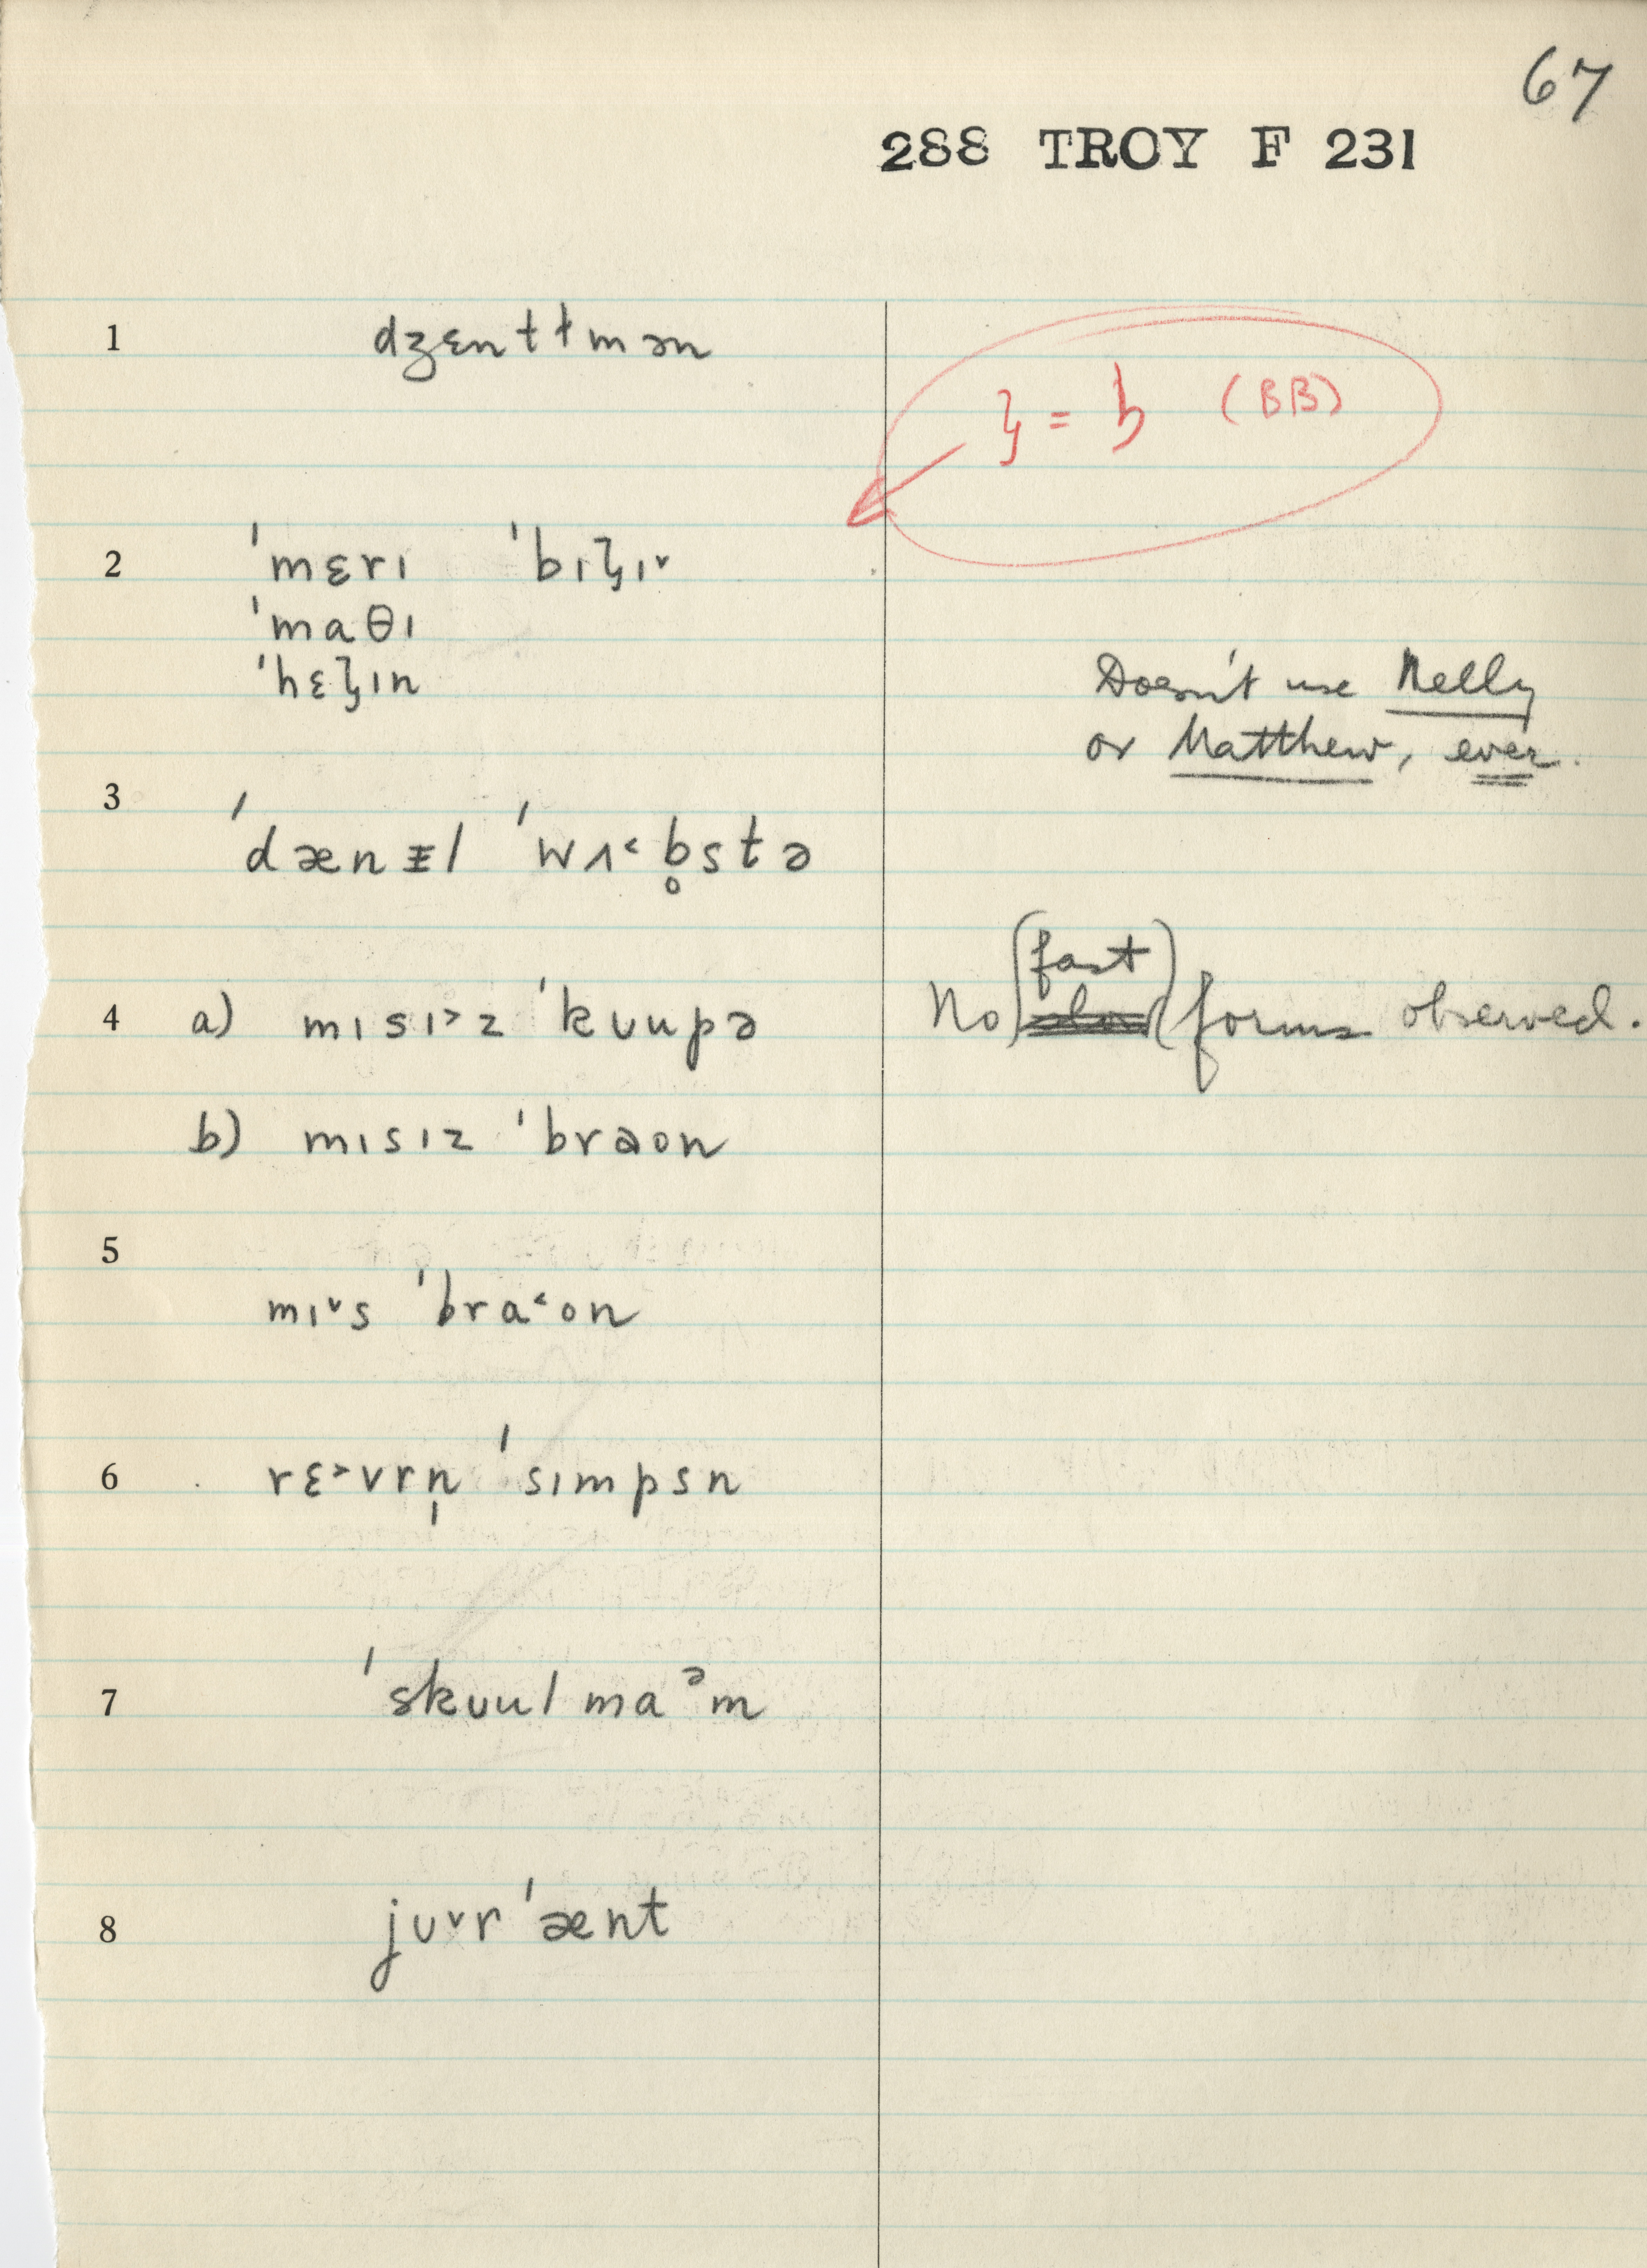 67
288 TROY F 231
1 dʒɛntɫmən
ʓ = ꜧ (BB)
2 ˈmɛrɪ ˈbɪʓɪ˅
ˈmaθɪ
ˈhɛʓɪn
Doesn't use Nelly
or Matthew, ever.
3 ˈdænᵻl ˈwʌ˂b̥stə
4 a) mɪsɪ˃z ˈkʊupə No (fast) slow forms observed.
b) mɪsɪz ˈbraon
5
mɪ˅s ˈbra˂on
6 rɛ˃vrn̩ ˈsɪmpsn
7 ˈskʊul maᵊm
8 jʊ˅r ˈænt